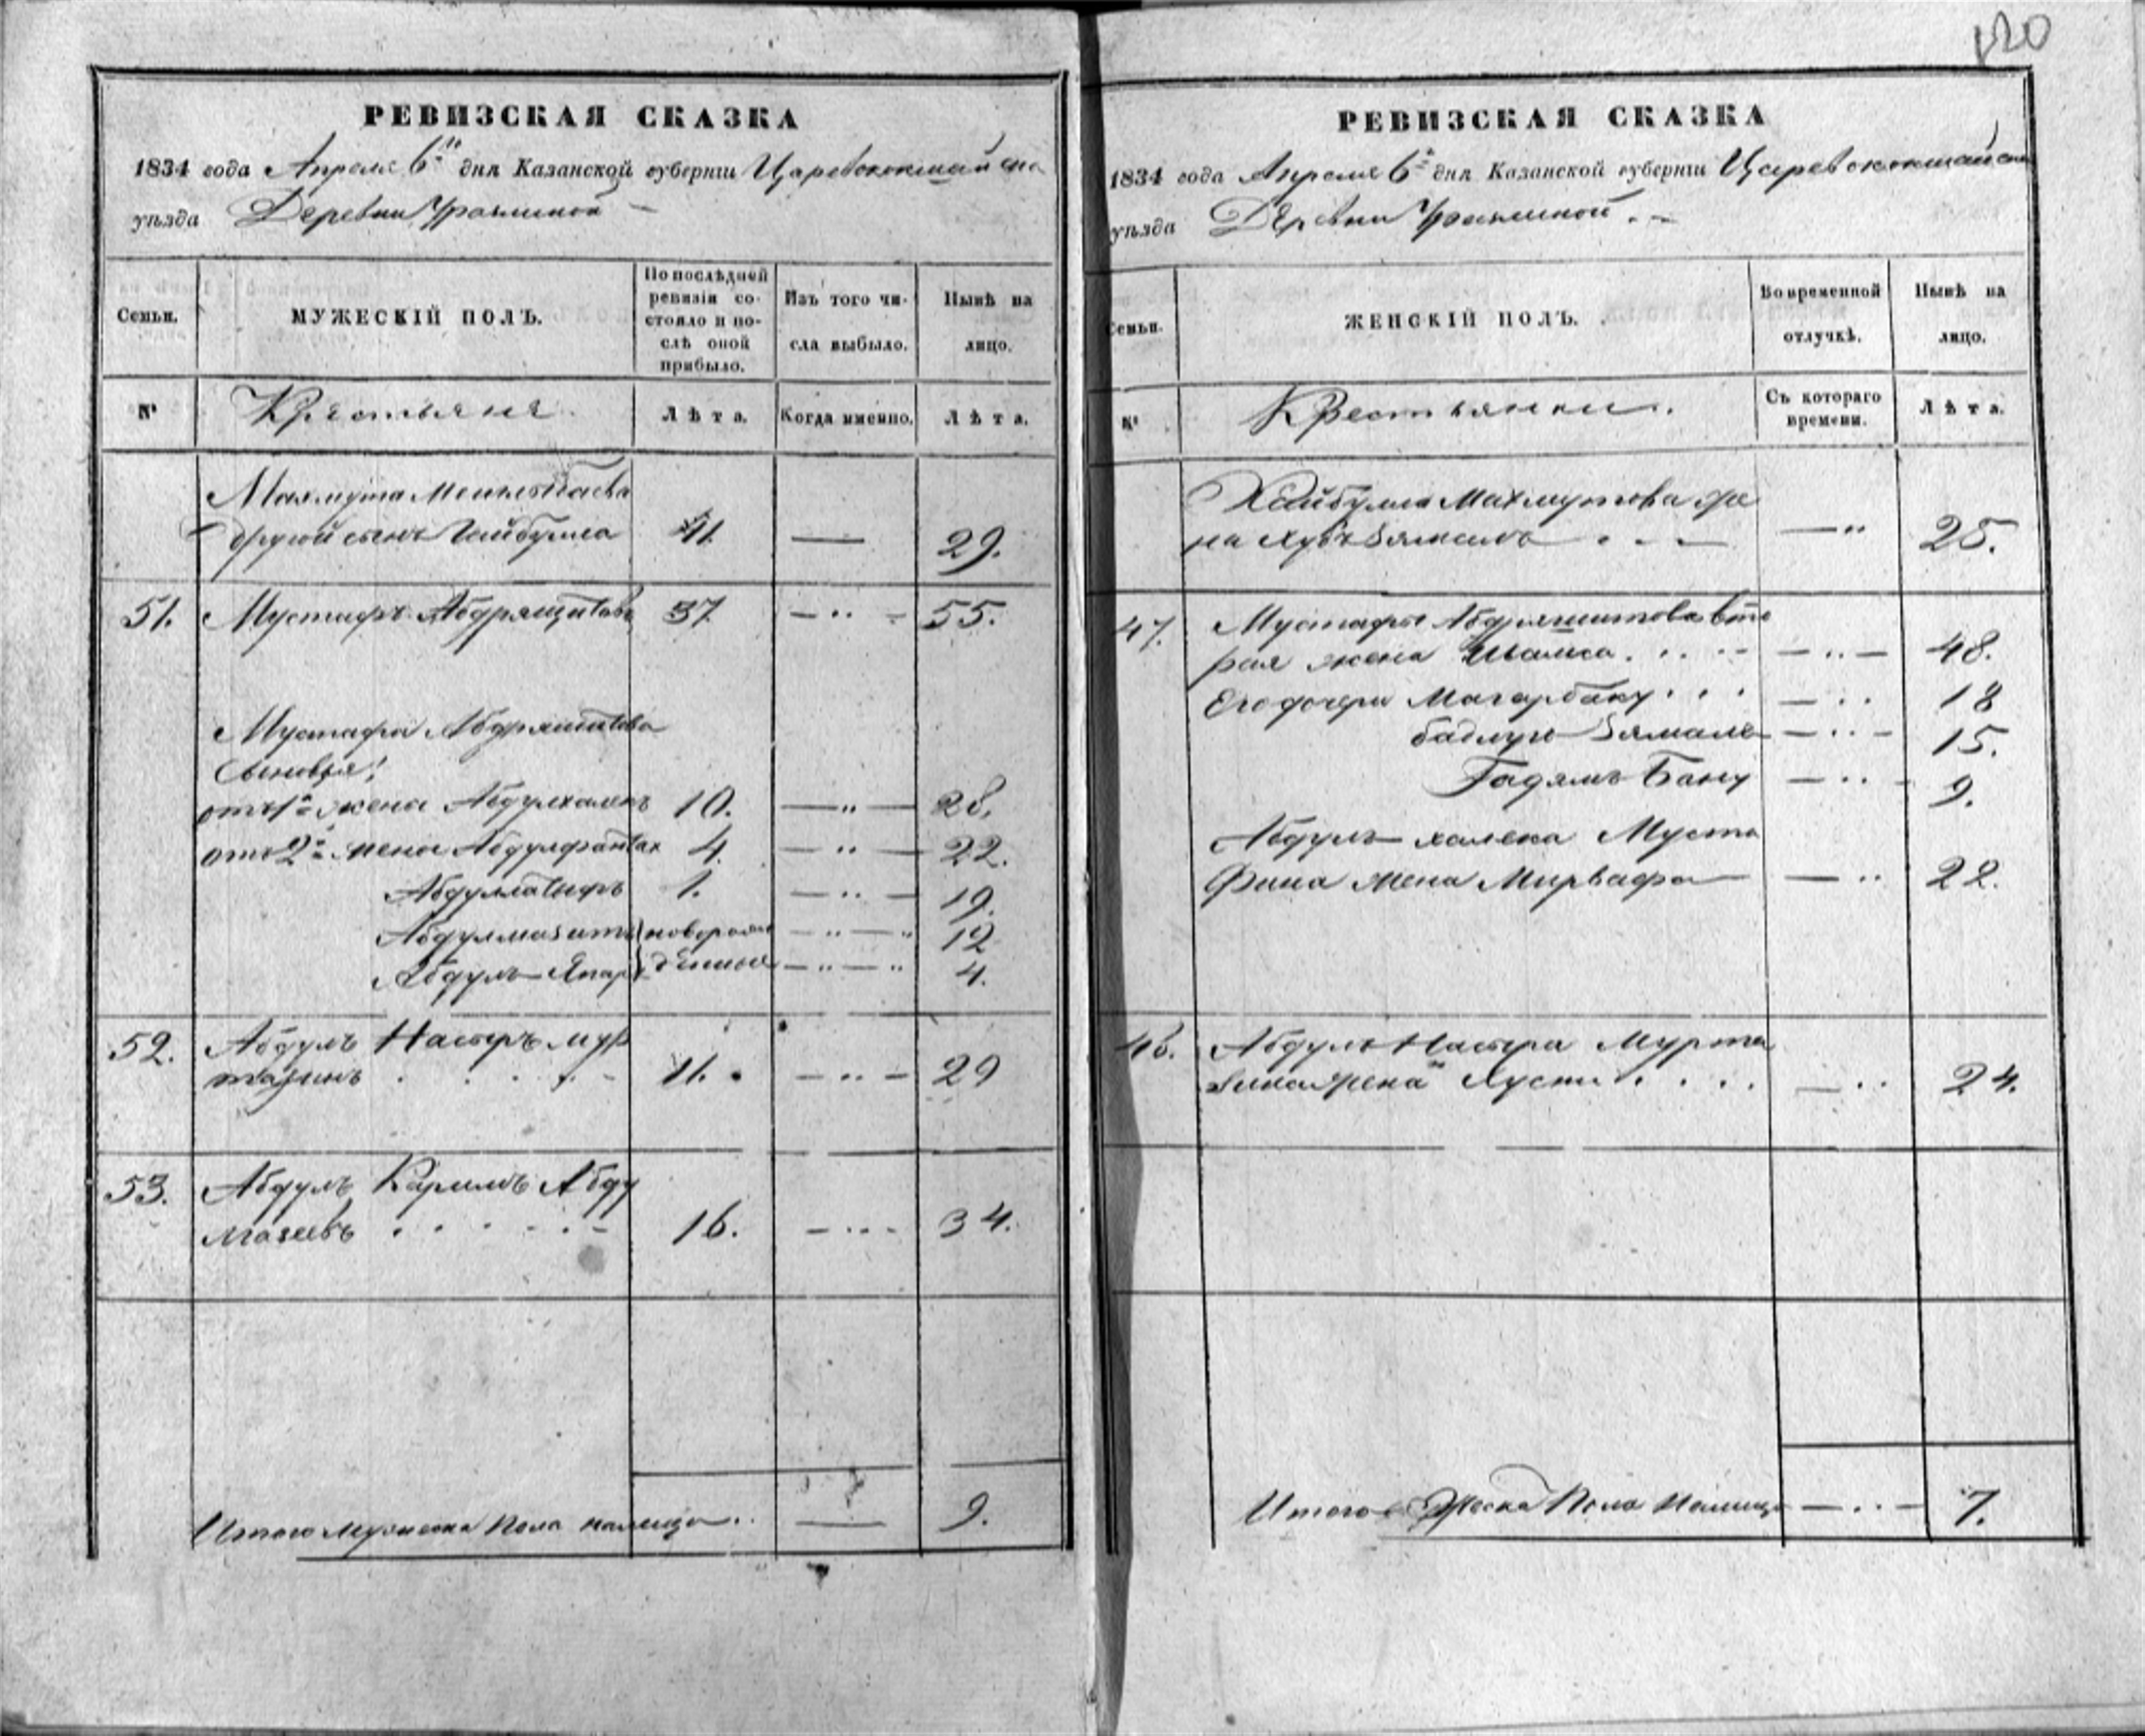 120
РЕВИЗСКАЯ СКАЗКА
1834 года Апреля 6го дня Казанской губерніи Царевококшайска
уѣзда Деревни
Семьи.
МУЖЕСКІЙ ПОЛЪ.
По послѣдней ревизіи состояло и послѣ оной прибыло.
Изъ того числа выбыло.
Нынѣ на лицо.
№
Крестьяне
Лѣта.
Когда именно.
Лѣта.
Махмута Менлыбаева
другой сынъ Хайбулла 11 — 29.
51. Мустафъ Абдрящитовъ 37 — 55.
Мустафы Абдряшитова
Сыновья:
отъ 1й жены Абдулхалекъ 10. — 28.
отъ 2й жены Абдулфаттах 4. — 22.
Абдуллатыфъ 1. — 19.
Абдулмазитъ новорож — 12
Абдулъ Япаръ денные — 4.
52. Абдулъ Насыръ мур
тазинъ 11. — 29
53. Абдулъ Каримъ Абду
мазеевъ 16. — 34.
Итого Мужеска Пола налицо — 9.
РЕВИЗСКАЯ СКАЗКА
1834 года Апреля 6го дня Казанской губерніи Царевококшайска
уѣзда Деревни
Семьи.
ЖЕНСКІЙ ПОЛЪ.
Во временной отлучкѣ.
Нынѣ на лицо.
№
Крестьянки.
Съ котораго времени.
Лѣта.
Хайбуллы Махмутова же
на Хубъзямалъ — 25.
47. Мустафы Абдряшитова вто
рая жена Шамса — 48.
Его дочери Магарбану — 18
бадлугъ Зямалъ — 15.
Гадямъ Бану — 9.
Абдулъ халека Муста
фина жена Мирвафа — 22.
48. Абдулъ Насыра Мурта
зина жена Хусни — 24.
Итого Женска Пола Налицо — 7.